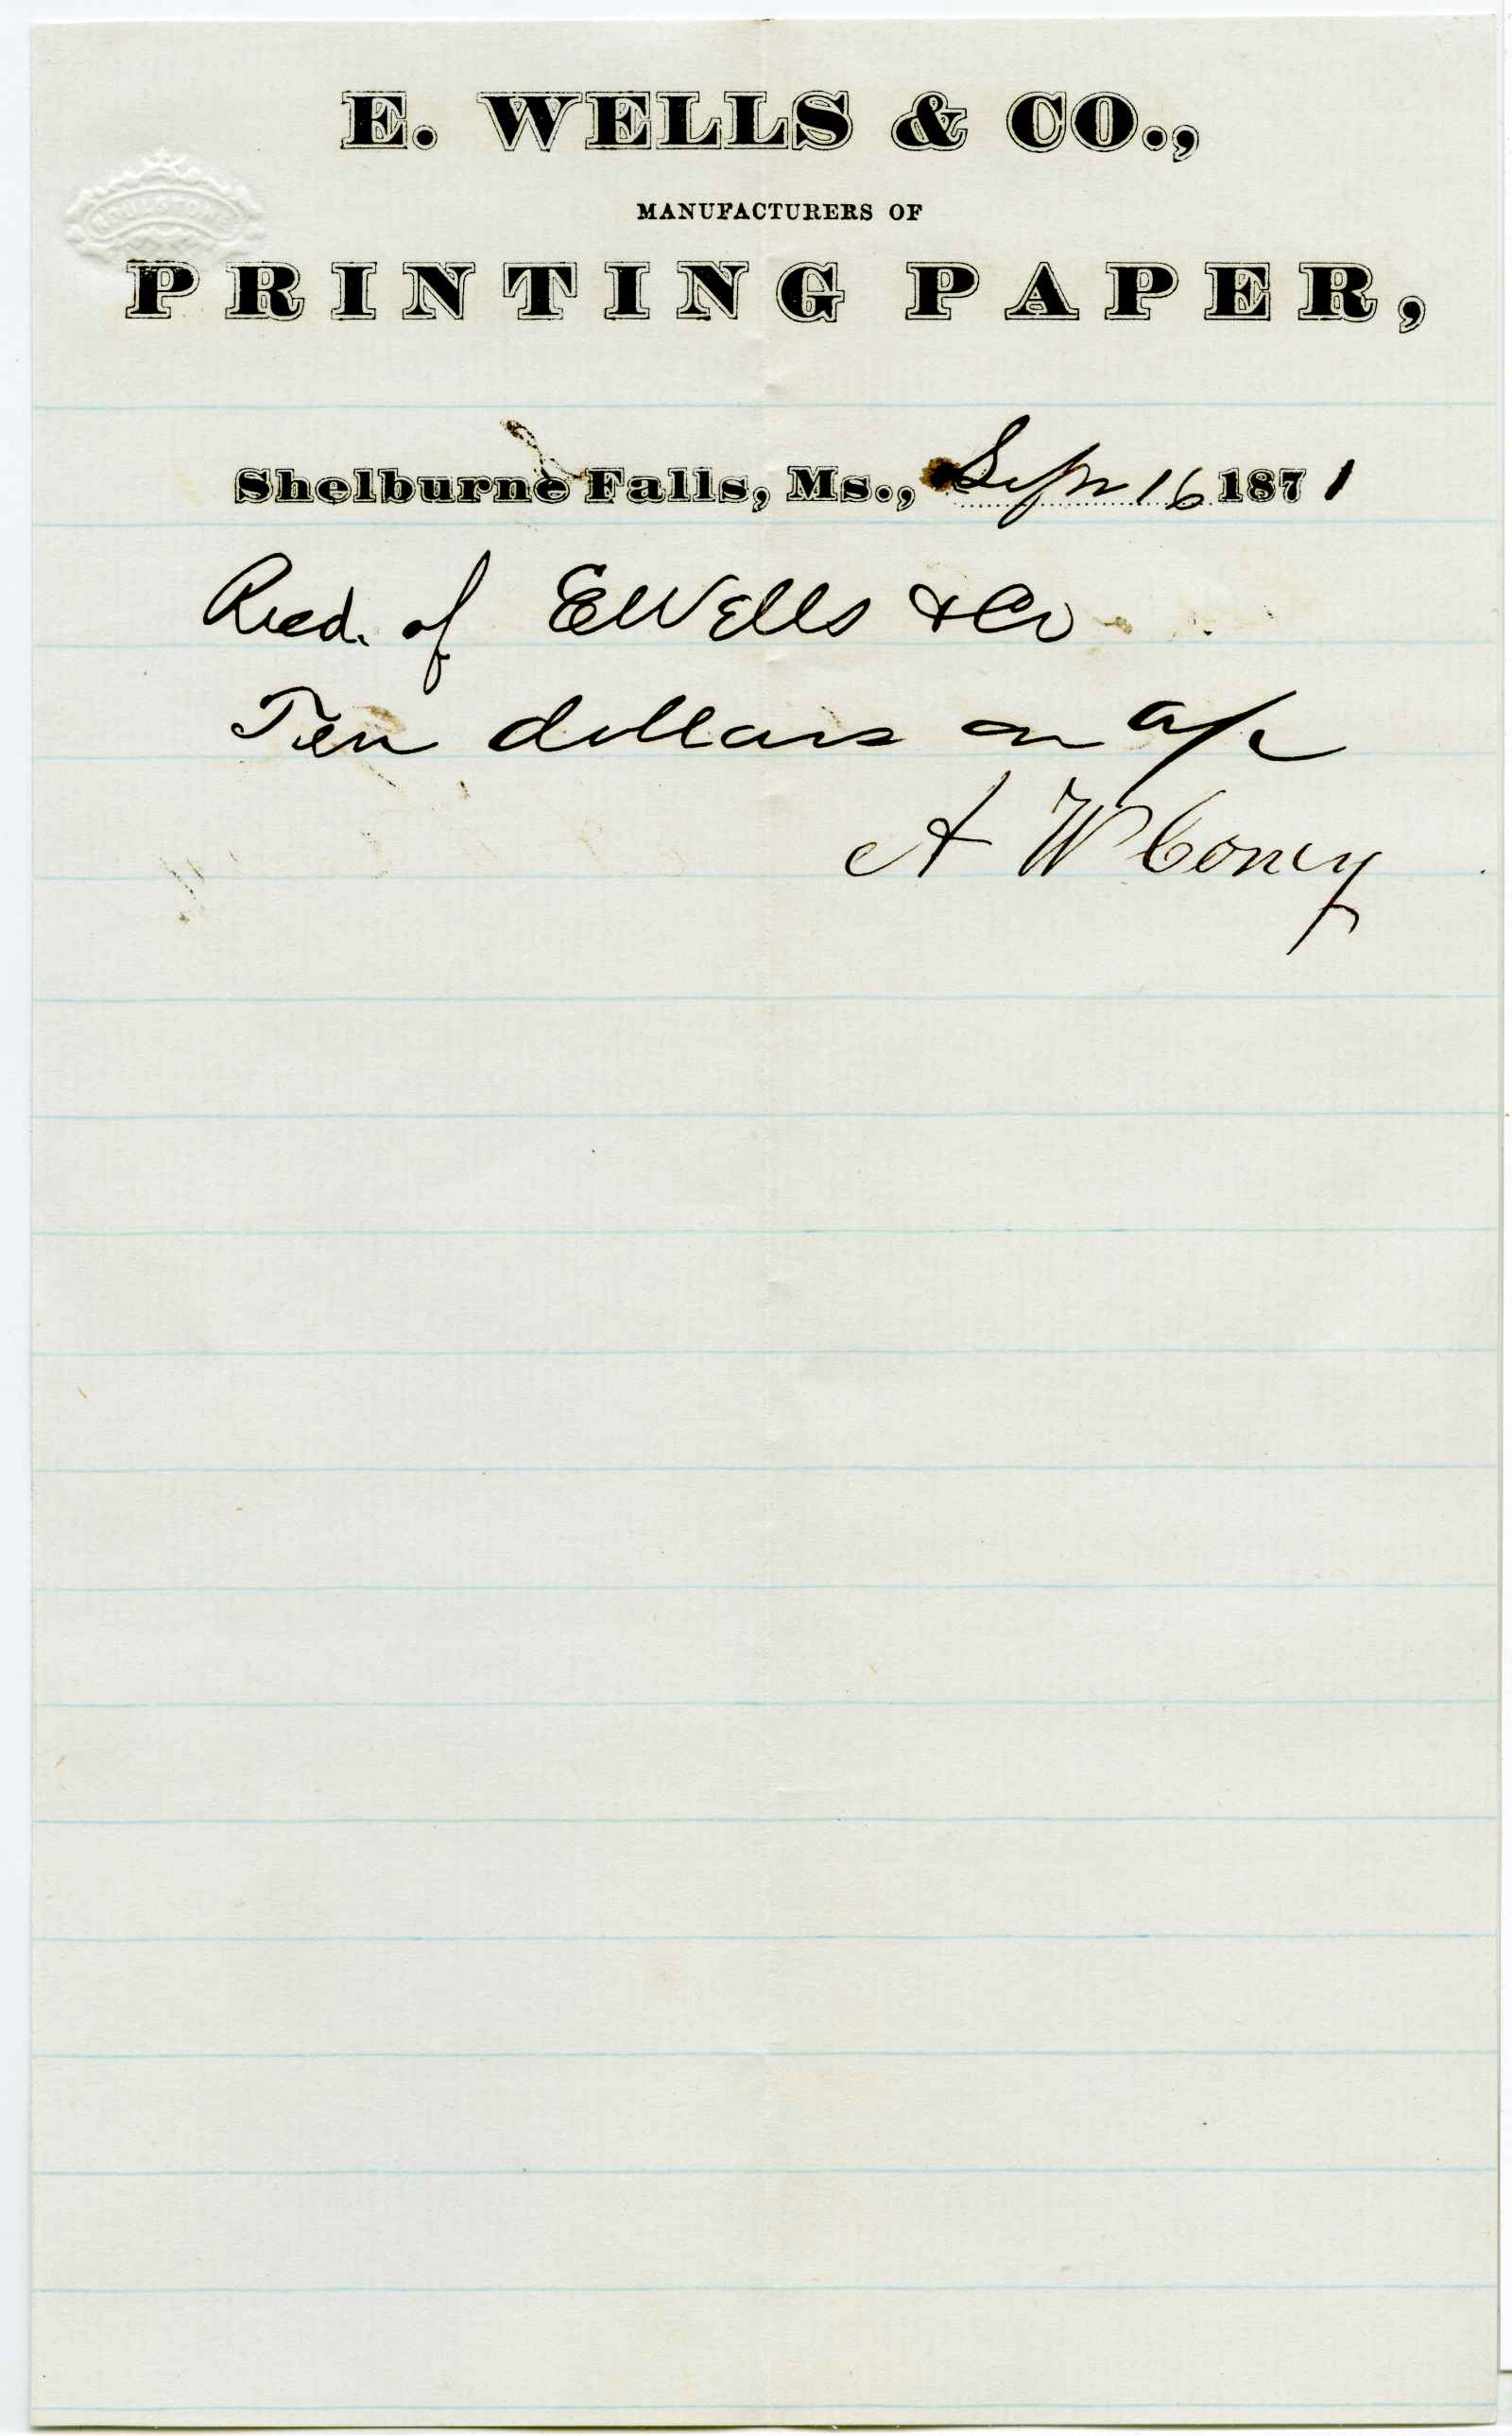 E. WELLS & CO.,
MANUFACTURERS OF
PRINTING PAPER,
Shelburne Falls, Ms., Sept 16 1871
Recd. of E Wells & Co
Ten dollars on a/c
A W Coney